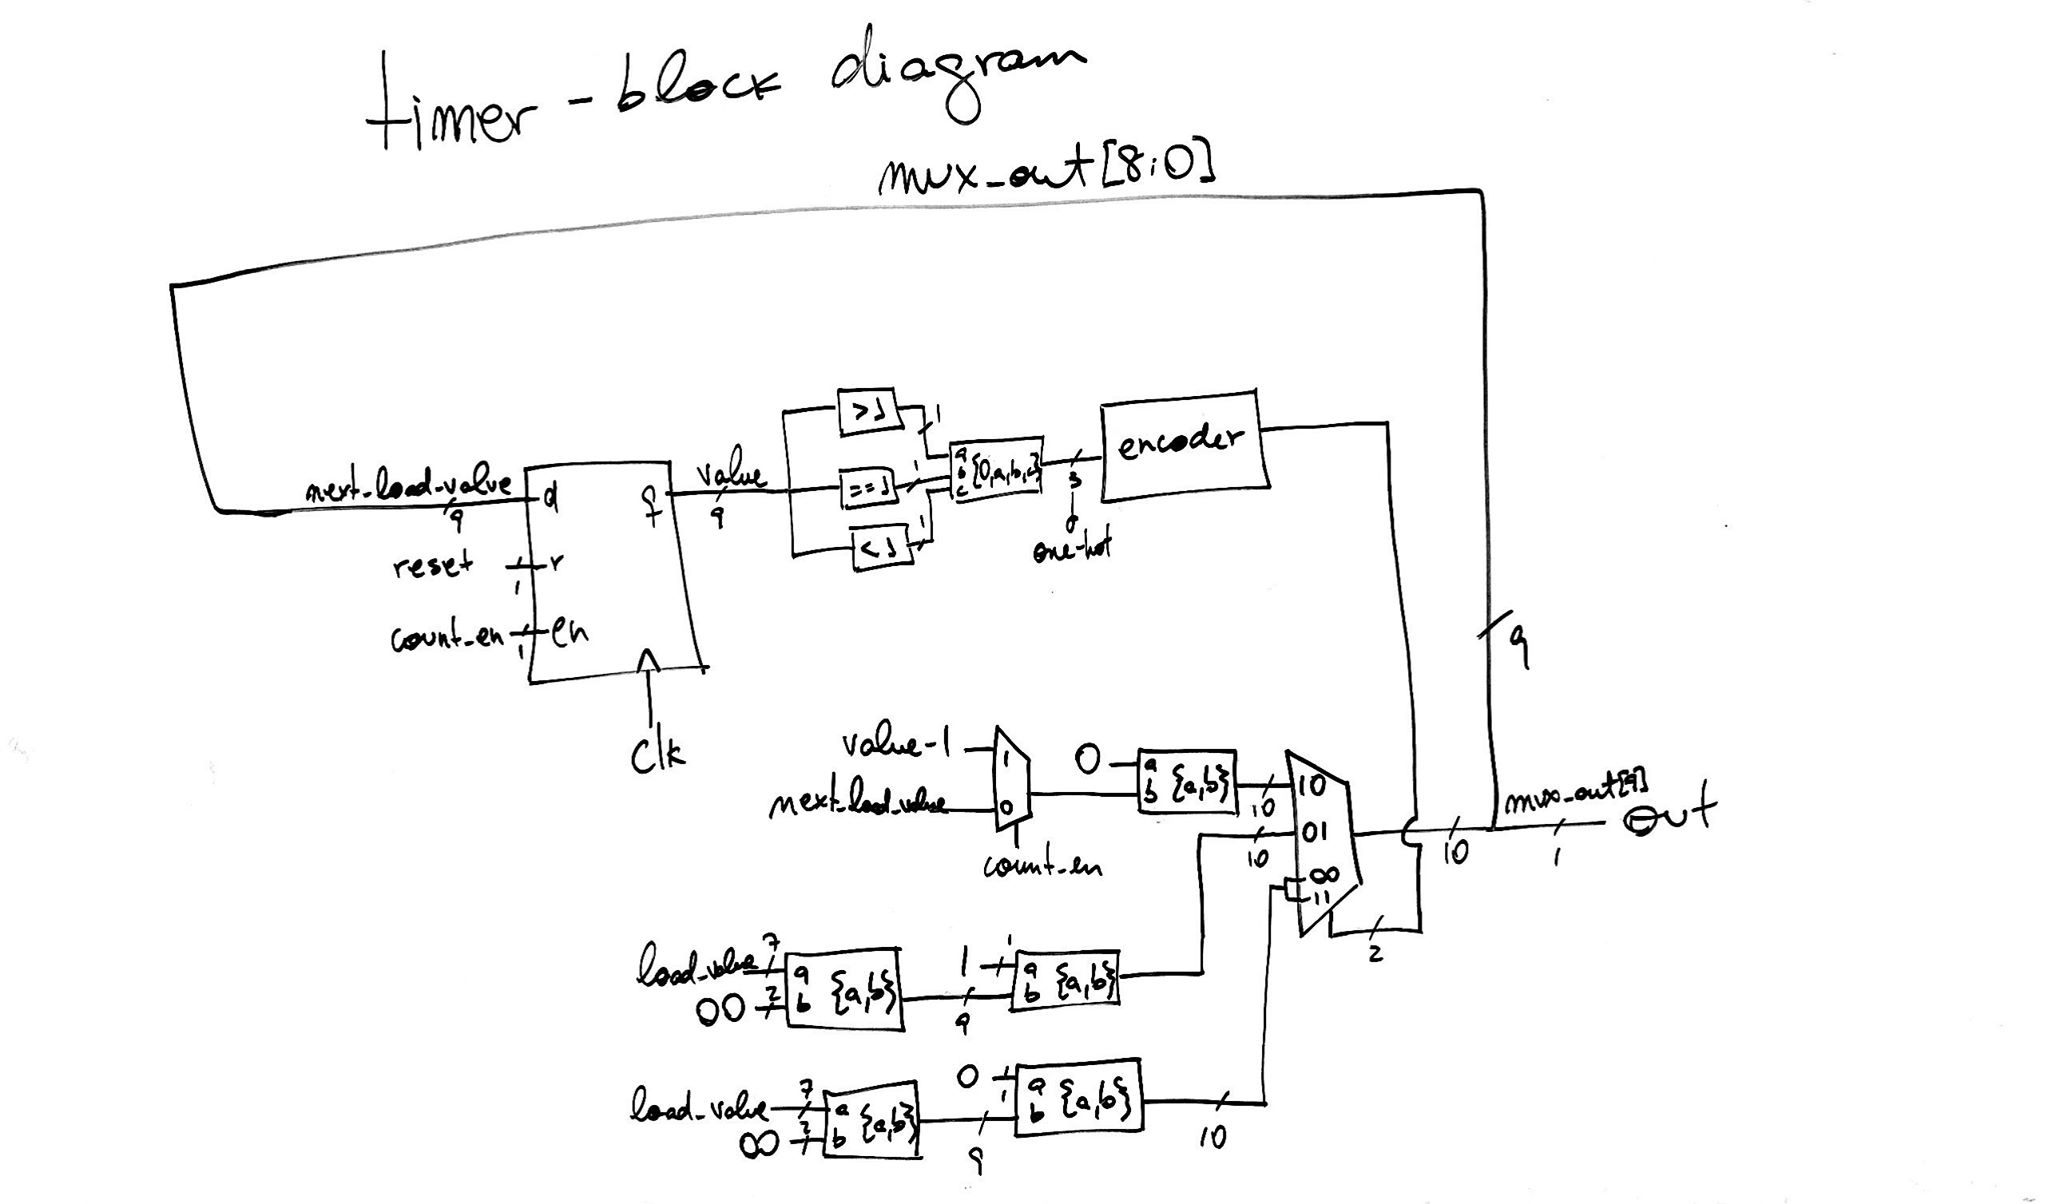 timer - block diagram
mux_out[8:0]
next_load_value
9
reset
1
count_en
1
d
r
en
q
Clk
value
9
>1
==1
<1
1
1
1
a
b
c
{0,a,b,c}
3
one-hot
encoder
9
value-1
next_load_value
1
0
count_en
0
a
b
{a,b}
10
10
10
01
00
11
2
10
mux_out[9]
1
out
load_value
7
00
2
a
b
{a,b}
9
1
1
a
b
{a,b}
load_value
7
00
2
a
b
{a,b}
9
0
1
a
b
{a,b}
10